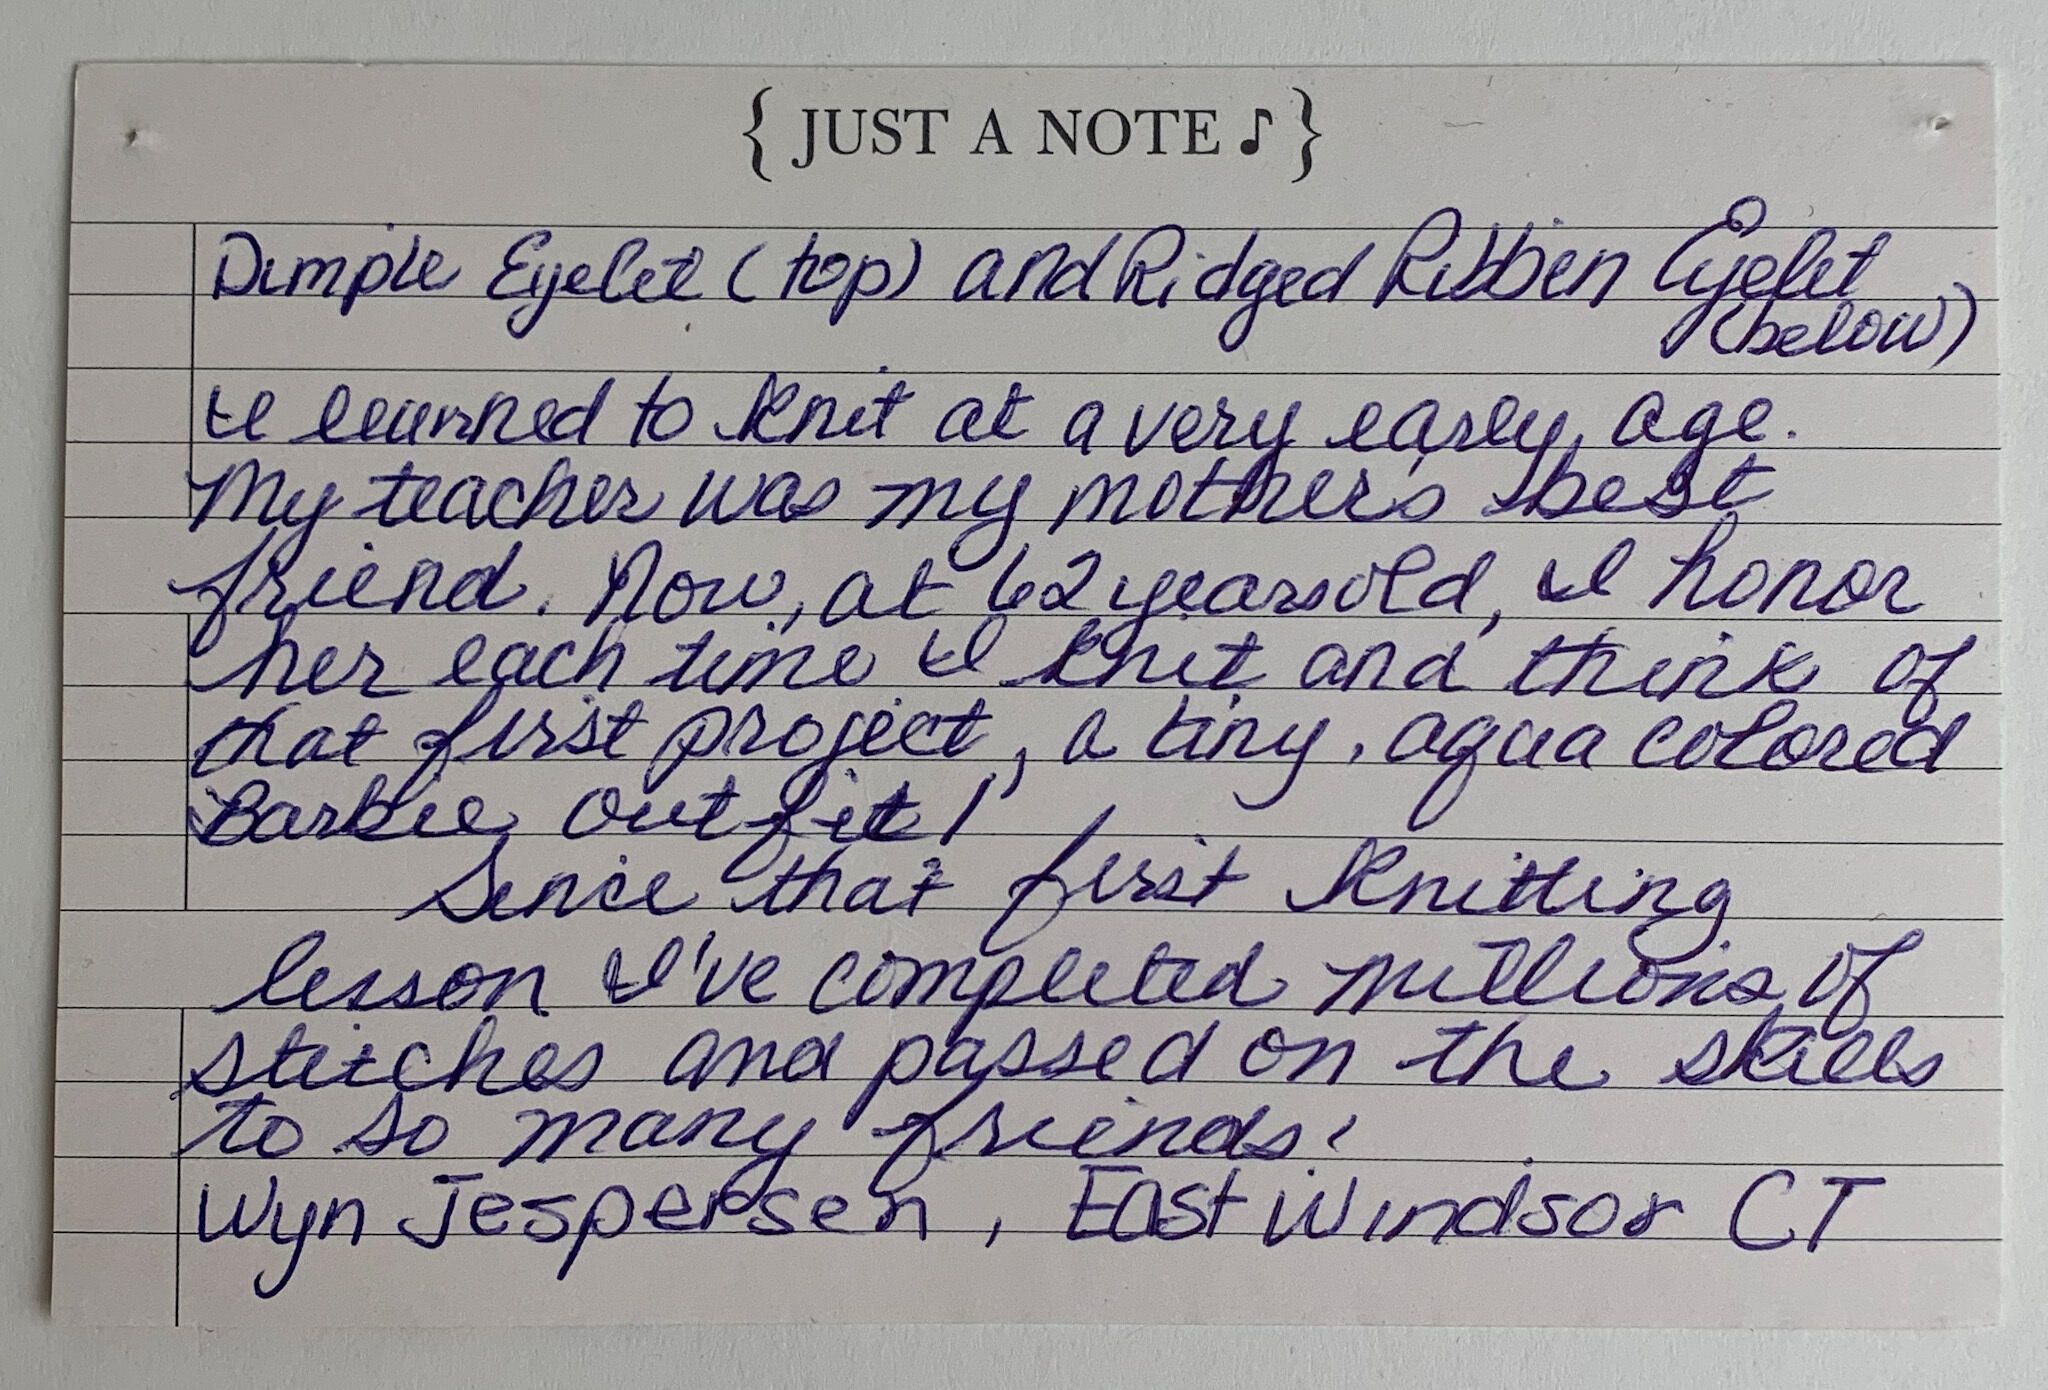 { JUST A NOTE ♪ }
Dimple Eyelet (top) and Ridged Ribben Eyelet
(below)
I learned to knit at a very early age.
My teacher was my mother's best
friend. Now, at 62 years old, I honor
her each time I knit and think of
that first project, a tiny, aqua colored
Barbie outfit!
Since that first knitting
lesson I've completed millions of
stitches and passed on the skills
to so many friends!
Wyn Jespersen, East Windsor CT